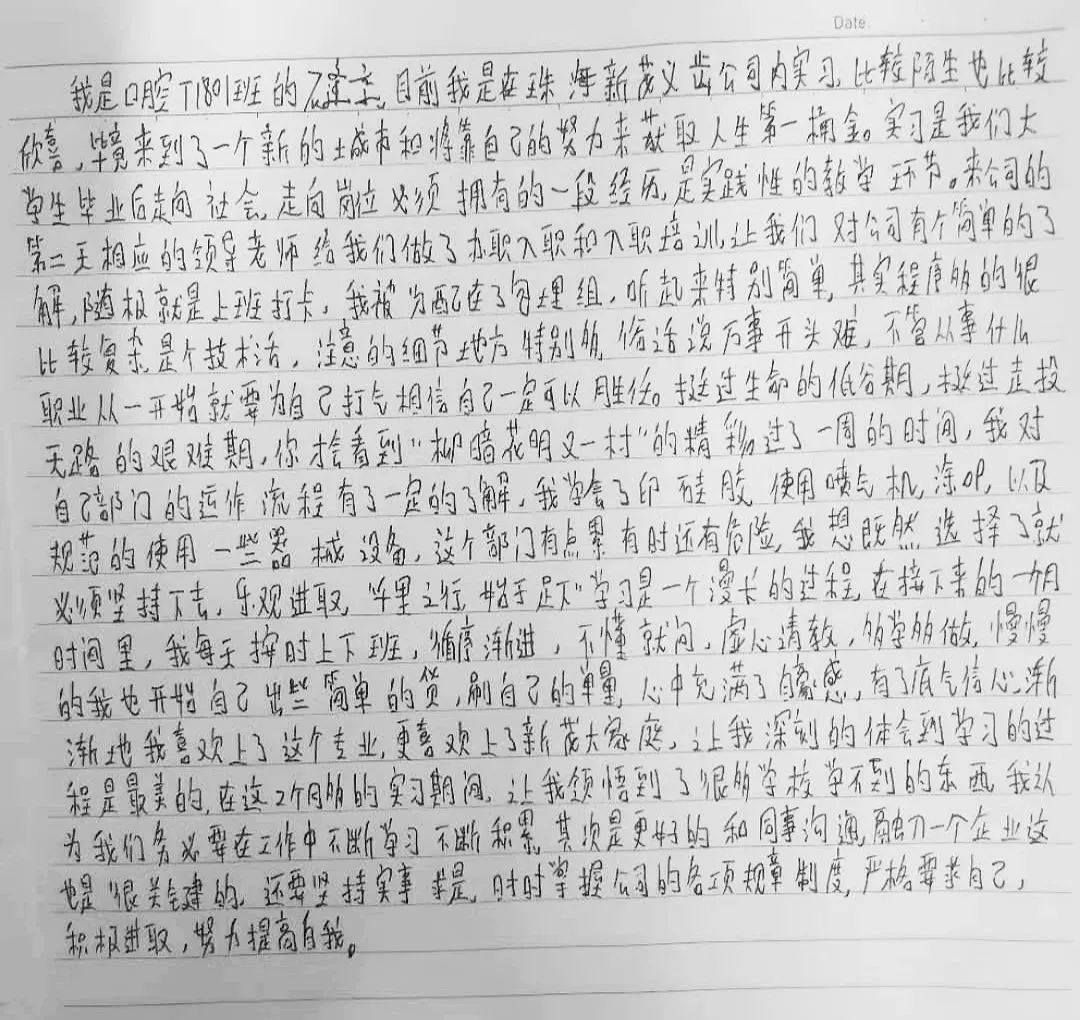 Date.
我是口腔T1801班的石 目前我是在珠海新茂义齿公司内实习,比较陌生也比较
欣喜,毕竟来到了一个新的城市和将靠自己的努力来获取人生第一桶金。实习是我们大
学生毕业后走向社会,走向岗位必须拥有的一段经历,是实践性的教学环节。来公司的
第二天相应的领导老师给我们做了办职入职和入职培训,让我们对公司有个简单的了
解,随极就是上班打卡,我被分配在了 埋组,听起来特别简单,其实程序多的很
比较复杂,是个技术活,注意的细节地方特别多,俗话说万事开头难,不管从事什么
职业从一开始就要为自己打气相信自己一定可以胜任。挺过生命的低谷期,挺过走投
无路的艰难期,你才会看到“柳暗花明又一村”的精彩,过了一周的时间,我对
自己部门的运作流程有了一定的了解,我学会了印硅胶,使用喷气机,涂OP,以及
规范的使用一些器械设备,这个部门有点累有时还有危险,我想既然选择了就
必须坚持下去,乐观进取,“千里之行,始于足下”学习是一个漫长的过程,在接下来的一个月
时间里,我每天按时上下班,循序渐进,不懂就问,虚心请教,多学多做,慢慢
的我也开始自己出些简单的货,刷自己的单量,心中充满了自豪感,有了底气信心,渐
渐地我喜欢上了这个专业,更喜欢上了新茂大家庭,让我深刻的体会到学习的过
程是最美的,在这2个月多的实习期间,让我领悟到了很多学校学不到的东西,我认
为我们务必要在工作中不断学习不断积累,其次是更好的和同事沟通,融入一个企业这
也是很关键的,还要坚持实事求是,时时掌握公司的各项规章制度,严格要求自己,
积极进取,努力提高自我。